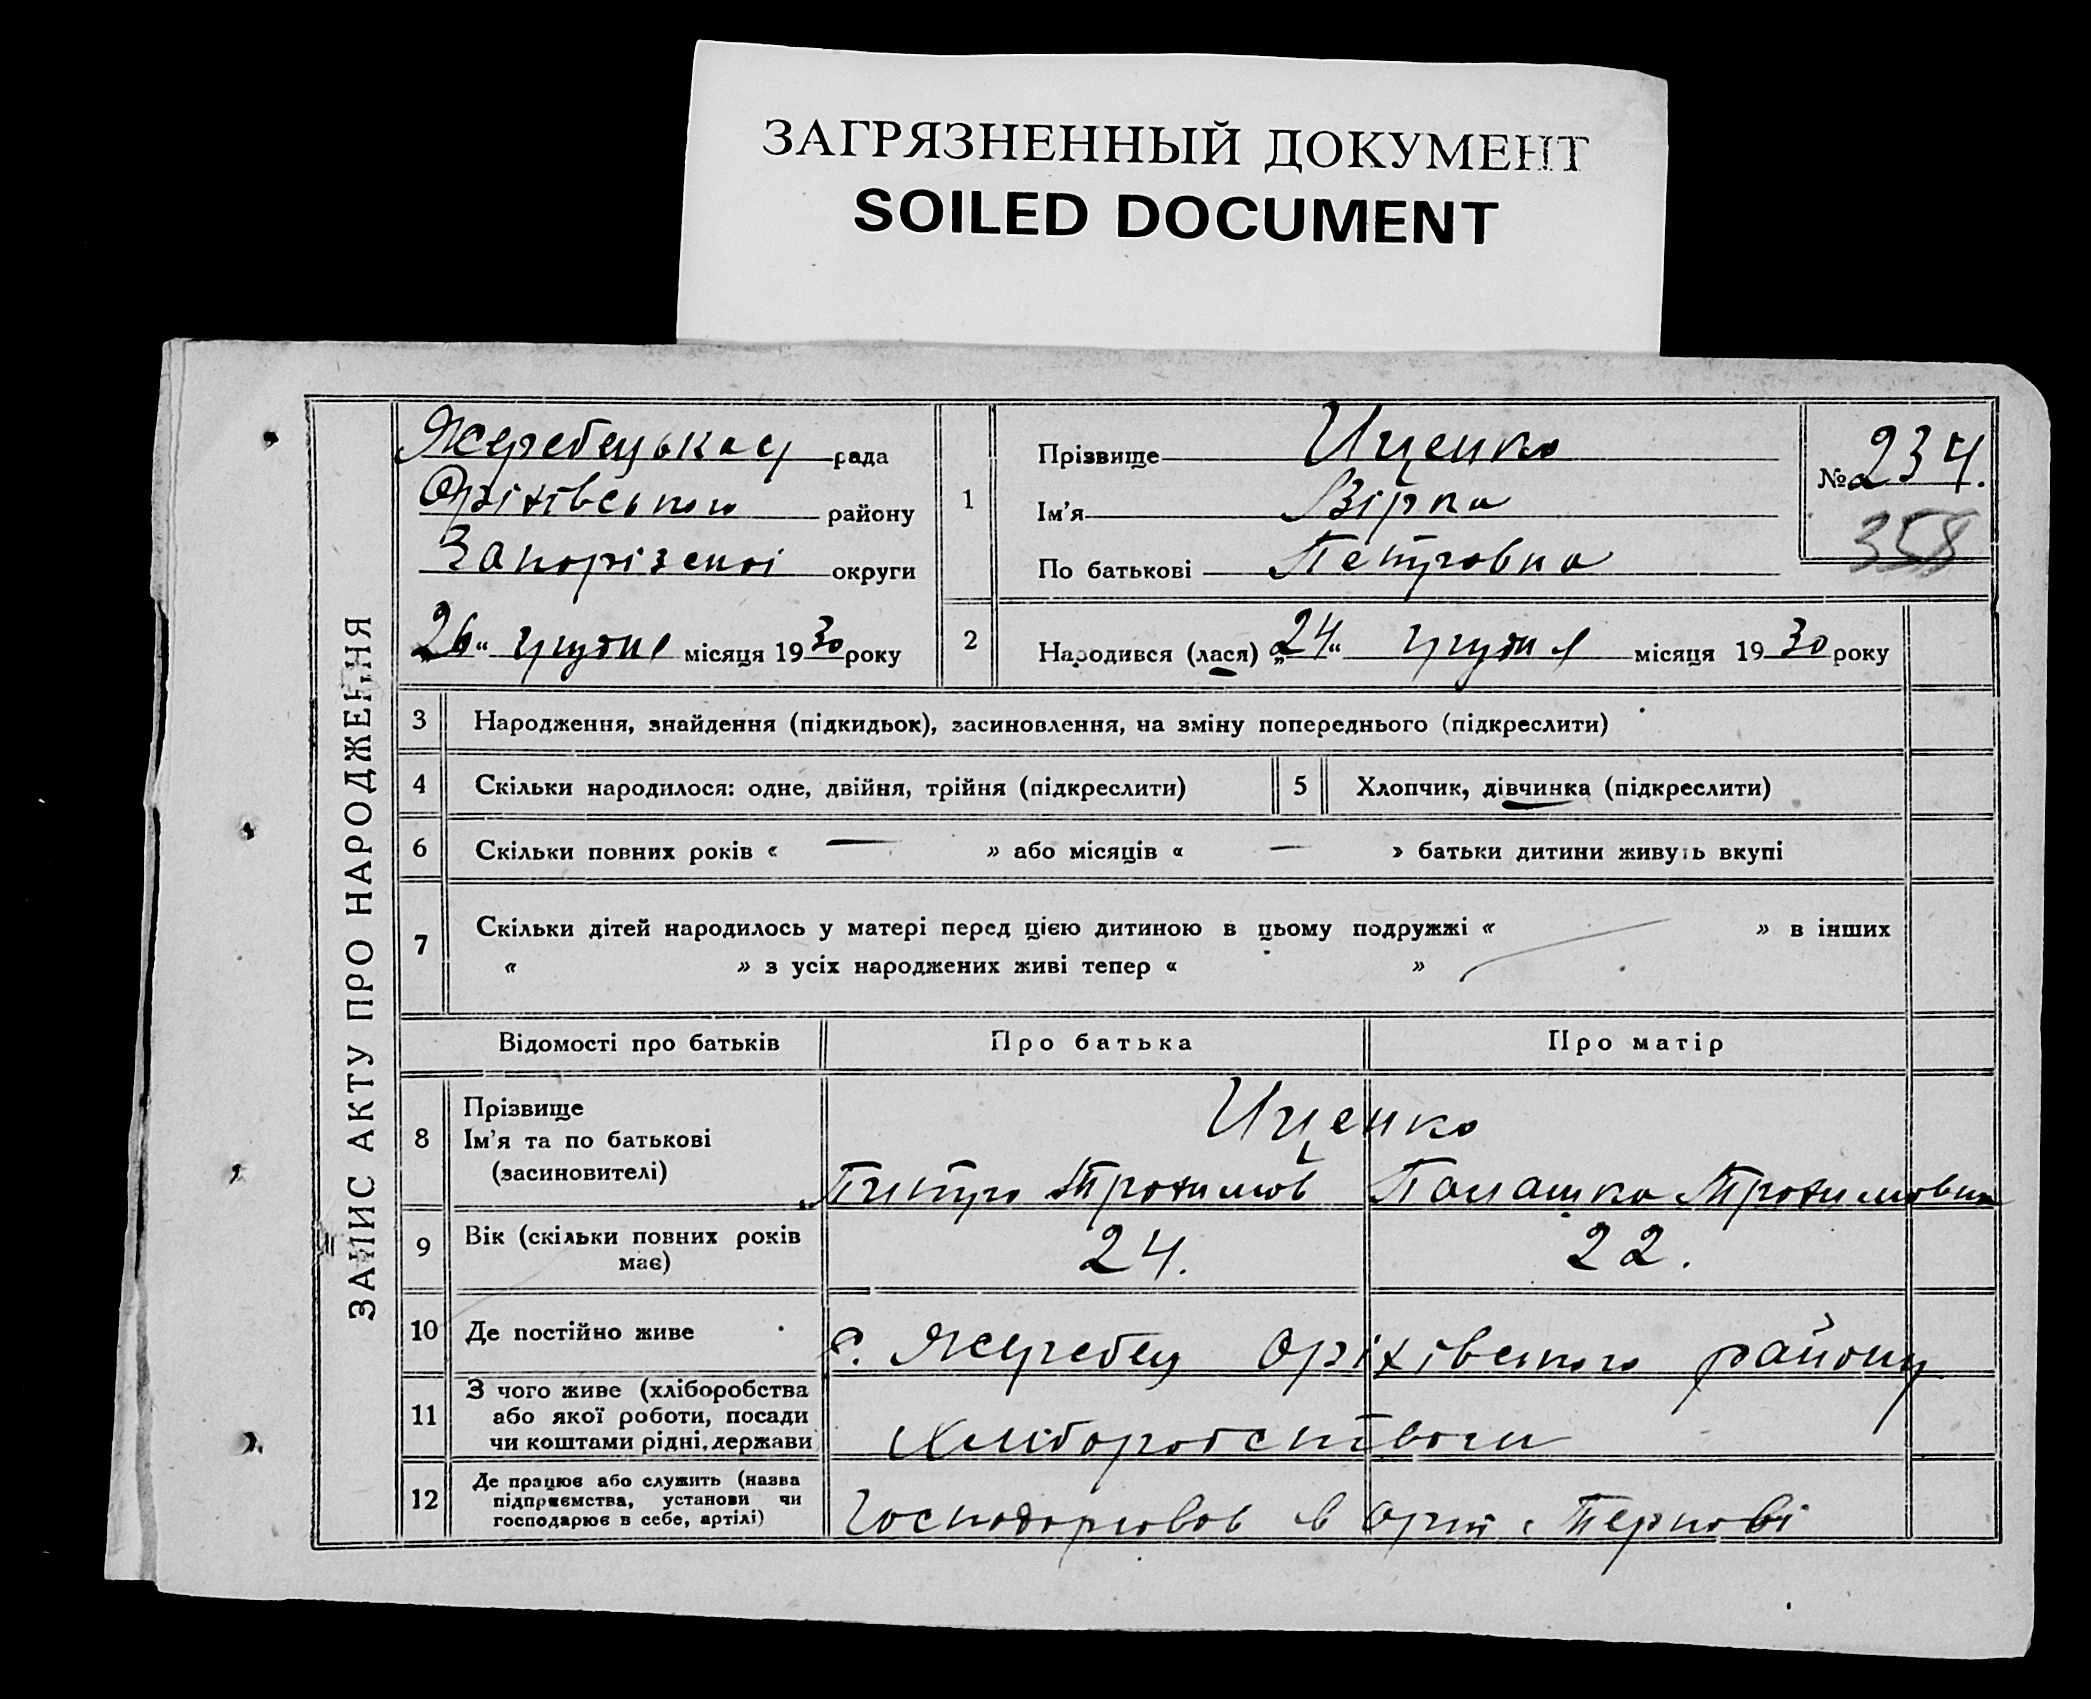 ЗАГРЯЗНЕННЫЙ ДОКУМЕНТ
SOILED DOCUMENT
ЗАПИС АКТУ ПРО НАРОДЖЕННЯ
Жеребецька рада
Оріхівського району
Запорізької округи
„26“ грудня місяця 1930 року
1
Прізвище Иценко
Ім'я Вірка
По батькові Петровна
№ 234.
358
2 Народився (лася) „24“ грудня місяця 1930 року
3 Народження, знайдення (підкидьок), засиновлення, на зміну попереднього (підкреслити)
4 Скільки народилося: одне, двійня, трійня (підкреслити) 5 Хлопчик, дівчинка (підкреслити)
6 Скільки повних років « — » або місяців « — » батьки дитини живуть вкупі
7 Скільки дітей народилось у матері перед цією дитиною в цьому подружжі « » в інших
« » з усіх народжених живі тепер « »
Відомості про батьків Про батька Про матір
8 Прізвище
Ім'я та по батькові
(засиновителі)
Иценко
Питро Трохимов Палашка Трохимовна
9 Вік (скільки повних років має) 24. 22.
10 Де постійно живе с. Жеребец Оріхівського району
11 З чого живе (хліборобства
або якої роботи, посади
чи коштами рідні, держави
Хліборобством
12 Де працює або служить (назва
підприємства, установи чи
господарює в себе, артілі)
в